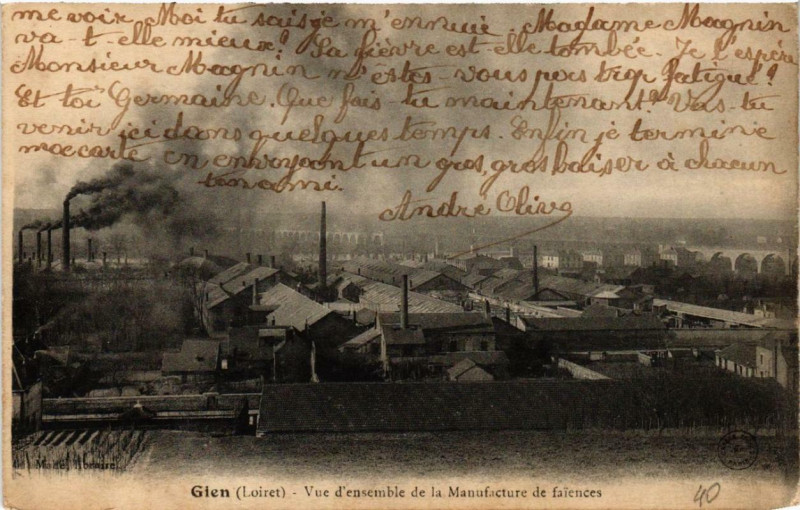 me voir. Moi tu sais je m'ennuie. Madame Magnin
va-t-elle mieux? Sa fièvre est-elle tombée. Je l'espère
Monsieur Magnin n'êtes-vous pas trop fatigué?
Et toi Germaine. Que fais-tu maintenant? Vas-tu
venir ici dans quelques temps. Enfin je termine
ma carte en envoyant un gros, gros baiser à chacun
ton ami.
André Oliva
Gien (Loiret) - Vue d'ensemble de la Manufacture de faïences
40